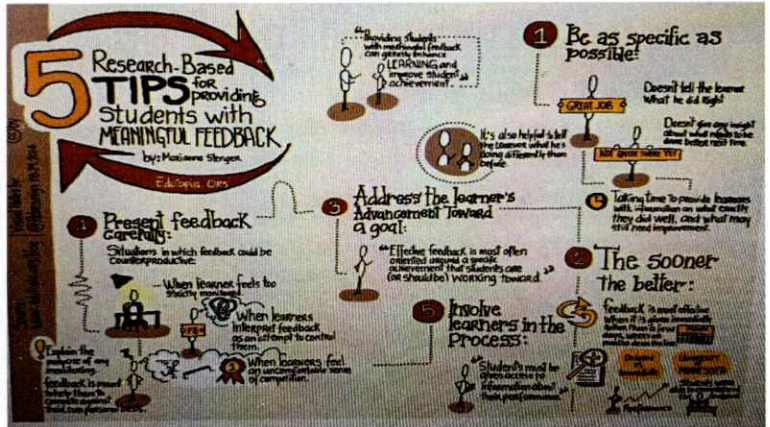 5
Research-Based
TIPS for
providing
Students with
MEANINGFUL FEEDBACK
by: Marianne Stenger
Edutopia. ORG
"Providing students
with meaningful feedback
can greatly enhance
LEARNING and
improve student
achievement."
1 Be as specific as
possible:
GREAT JOB
Doesn't tell the learner
what he did Right
Not Quite There Yet
Doesn't give any insight
about what needs to be
done better next time.
It's also helpful to tell
the learner what he's
doing differently than
before.
Taking time to provide learners
with information on what exactly
they did well, and what may
still need improvement.
2 The sooner
the better:
feedback is most effective
when it is given
Immediate
Performance
3 Address the learner's
Advancement Toward
a goal:
"Effective feedback is most often
oriented around a specific
achievement that students are
(or should be) WORKING TOWARD."
Present feedback
Carefully:
Situations in which feedback could be
Counterproductive:
When learner feels too
strictly monitored.
When learners
interpret feedback
as an attempt to control
them.
When learners feel
an uncomfortable sense
of competition.
Explain the
purpose of any
monitoring.
feedback is meant
to help them to
compete against
their own personal bests.
5 Involve
learners in the
Process:
"Students must be
given access to
information about
their performance.